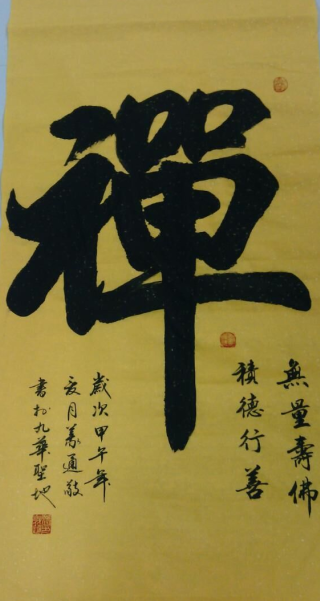 禪
無量壽佛
積德行善
歲次甲午年
夏月義通敬
書於九華聖地